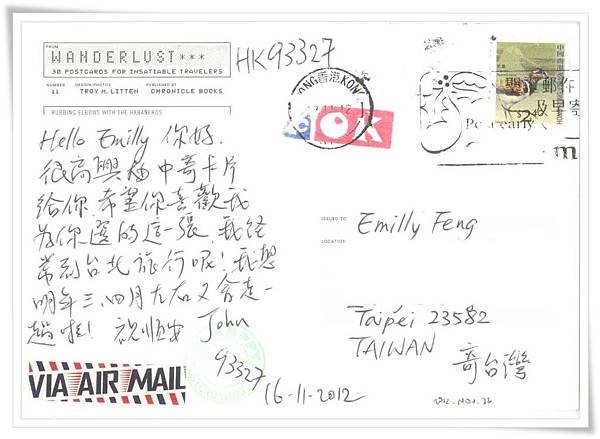 FROM
WANDERLUST***
30 POSTCARDS FOR INSATIABLE TRAVELERS
NUMBER
11
DESIGN+PHOTOS
TROY M. LITTEN
PUBLISHED BY
CHRONICLE BOOKS
RUBBING ELBOWS WITH THE HABANEROS
HK93327
Hello Emilly 你好.
很高興抽中寄卡片
給你,希望你喜歡我
為你選的這一張.我經
常到台北旅行呢!我想
明年三.四月左右又會走一
趟啦! 祝順安 John
93327
VIA AIR MAIL
16-11-2012
ONG香港KONG
OK
中國香港
郵件
及早寄
Post early
ISSUED TO
Emilly Feng
LOCATION
Taipei 23582
TAIWAN 寄台灣
2012.NOV.26